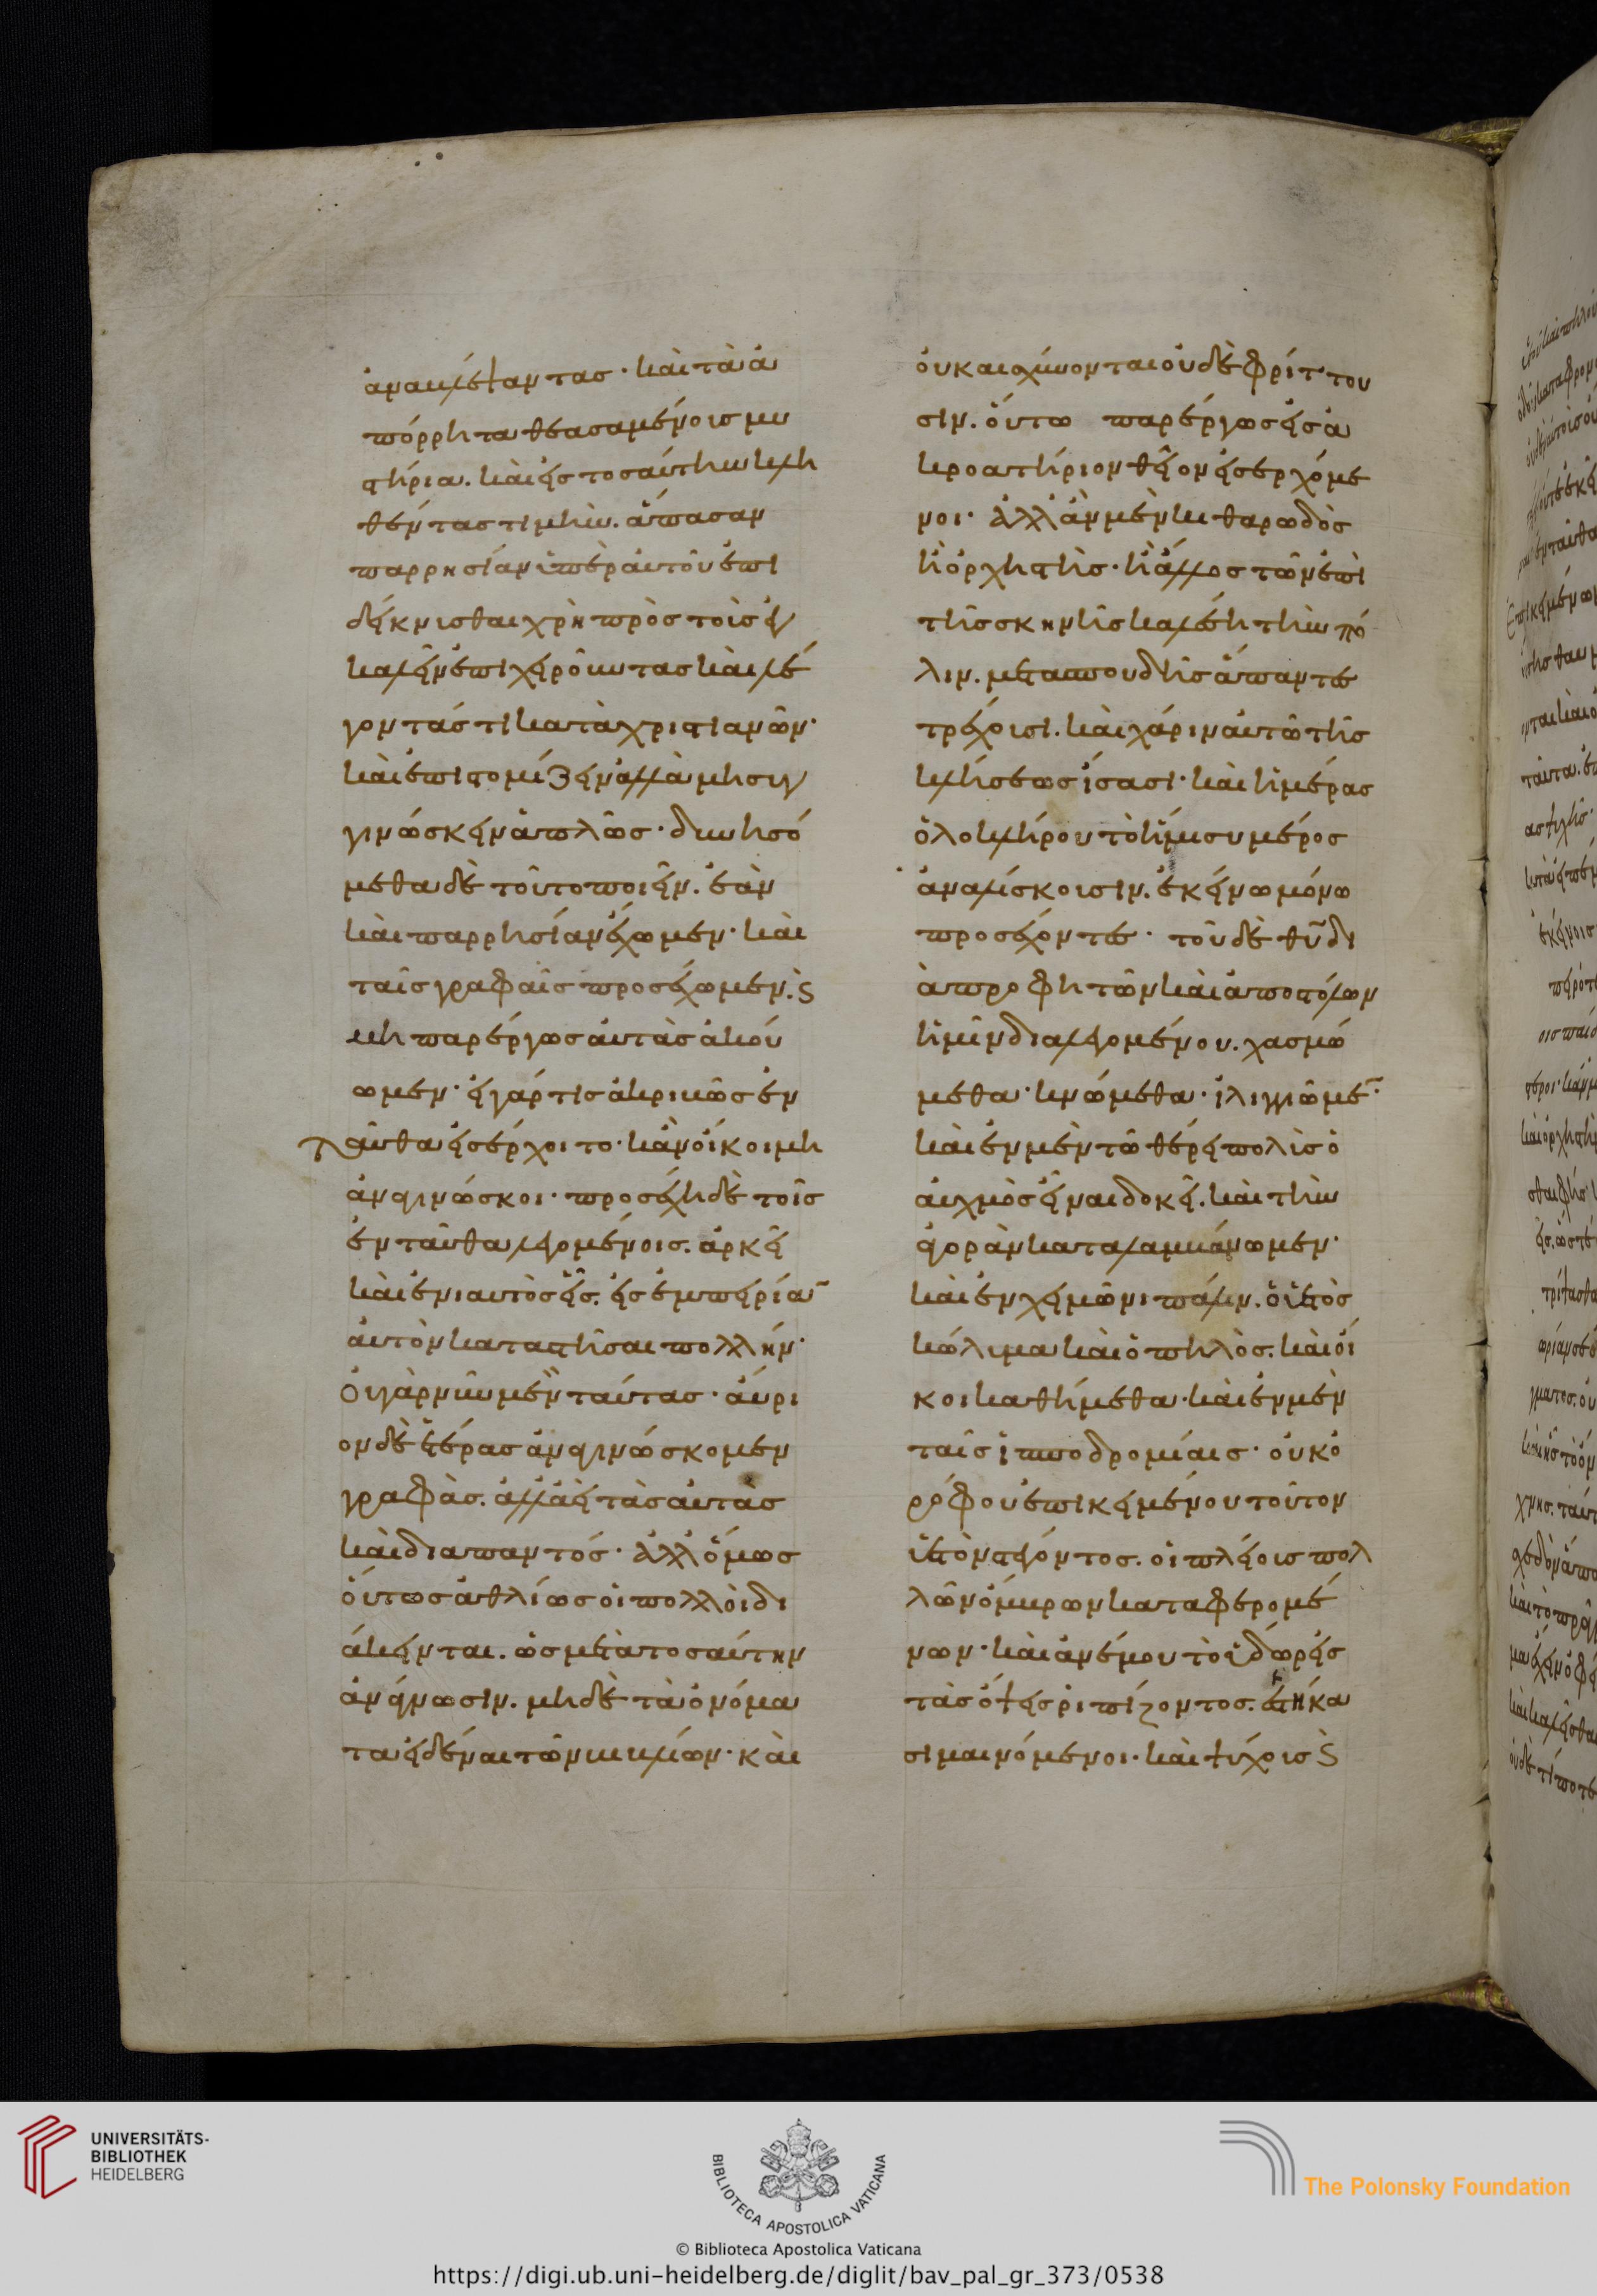 ἀναβλέψαντας· καὶ τὰ ἀ
πόρρητα θεασαμένοις μυ
στήρια. καὶ εἰς τοσαύτην κλη
θέντας τιμὴν. ἅπασαν
παρρησίαν ὑπὲρ αὐτοῦ ἐπι
δείκνυσθαι χρὴ πρὸς τοὺς ἐγ
καλεῖν ἐπιχειροῦντας καὶ λέ
γοντάς τι κατὰ χριστιανῶν·
καὶ ἐπιστομίζειν ἀλλὰ μὴ συγ
γινώσκειν ἁπλῶς· δυνησό
μεθα δὲ τοῦτο ποιεῖν. ἐὰν
καὶ παρρησίαν ἔχωμεν· καὶ
ταῖς γραφαῖς προσέχωμεν. ϗ
μὴ παρέργως αὐτὰς ἀκού
ωμεν· εἰ γάρ τις ἀκριβῶς ἐν
ταῦθα εἰσέρχοιτο· κἂν οἴκοι μὴ
ἀναγινώσκοι· προσέχη δὲ τοῖς
ἐνταῦθα λεγομένοις. ἀρκεῖ
καὶ ἐνιαυτὸς εἷς. εἰς ἐμπειρίαν
αὐτὸν καταστῆσαι πολλήν·
οὐ γὰρ νῦν μὲν ταύτας· αὔρι
ον δὲ ἑτέρας ἀναγινώσκομεν
γραφὰς. ἀλλὰ ἀεὶ τὰς αὐτὰς
καὶ διαπαντός· ἀλλ' ὅμως
οὕτως ἀθλίως οἱ πολλοὶ δι
άκεινται. ὡς μετὰ τοσαύτην
ἀνάγνωσιν. μηδὲ τὰ ὀνόμα
τα εἰδέναι τῶν βιβλίων· καὶ
οὐκ αἰσχύνονται οὐδὲ φρίττου
σιν. οὕτω παρέργως εἰς ἀ
κροατήριον θεῖον εἰσερχόμε
νοι· ἀλλ' ἂν μὲν κιθαρωδὸς
ἢ ὀρχηστὴς· ἢ ἄλλος τῶν ἐπὶ
τῆς σκηνῆς καλέση τὴν πό
λιν. μετὰ σπουδῆς ἅπαντες
τρέχουσι. καὶ χάριν αὐτῶ τῆς
κλήσεως ἴσασι· καὶ ἡμέρας
ὁλοκλήρου τὸ ἥμισυ μέρος
ἀναλίσκουσιν. ἐκείνω μόνω
προσέχοντες· τοῦ δὲ θυ δι
ὰ προφητῶν καὶ ἀποστόλων
ἡμῖν διαλεγομένου. χασμώ
μεθα· κνώμεθα· ἰλιγγιῶμεν·
καὶ ἐν μὲν τῶ θέρει πολὺς ὁ
αὐχμὸς εἶναι δοκεῖ. καὶ τὴν
ἀγορὰν καταλαμβάνωμεν·
καὶ ἐν χειμῶνι πάλιν. ὁ ὑετὸς
κώλυμα καὶ ὁ πηλὸς. καὶ οἴ
κοι καθήμεθα· καὶ ἐν μὲν
ταῖς ἱπποδρομίαις· οὐκ ὀ
ρόφου ἐπικειμένου τοῦ τὸν
ὑετὸν στέγοντος. οἱ πλείους πολ
λῶν ὄμβρων καταφερομέ
νων· καὶ ἀνέμου τὸ ὕδωρ εἰς
τὰς ὄψεις ῥιπίζοντος. ἑστήκα
σι μαινόμενοι. καὶ ψύχους ϗ